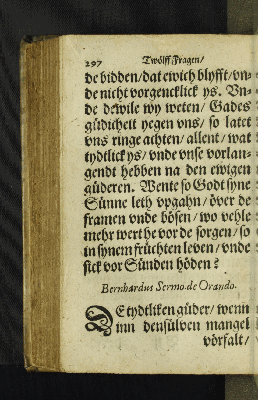 297 Twölff Fragen/
de bidden/dat ewich blyfft/vn⸗
de nicht vorgencklick ys. Vn⸗
de dewile wy weten/Gades
güdicheit yegen vns/so latet
vns ringe achten/allent/wat
tydtlick ys/vnde vnse vorlan⸗
gendt hebben na den ewigen
güderen. Wente so Godt syne
Sünne leth vpgahn/över de
framen vnde bösen/wo vehle
mehr wert he vor de sorgen/so
in synem früchten leven/vnde
sick vor Sünden höden?
Bernhardus Sermo.de Orando.
DE tydtliken güder/wenn
Einn densülven mangel
vörfalt/